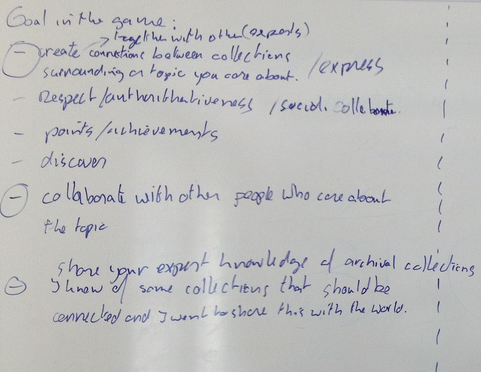 Goal in the game:
together with other (experts)
- create connections between collections
surrounding a topic you care about. /express
- Respect/authorithativeness /social. collaborate.
- points/achievements
- discover
- collaborate with other people who care about
the topic
share your expert knowledge of archival collections
- I know of some collections that should be
connected and I want to share this with the world.